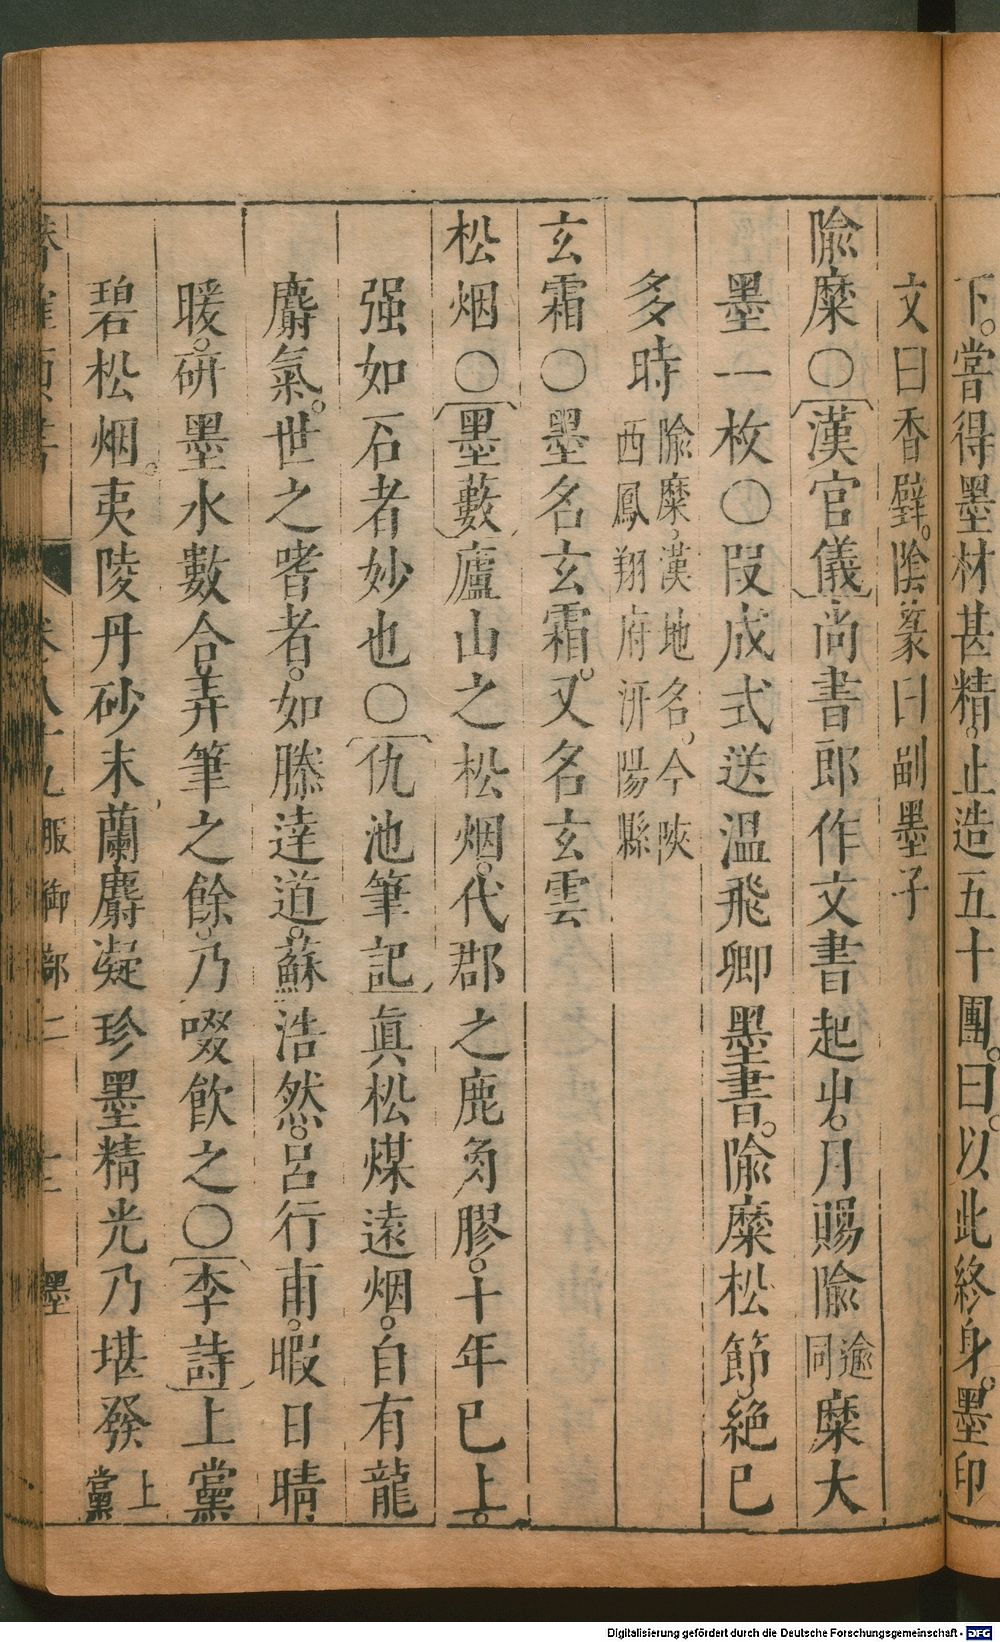 下。嘗得墨材甚精。止造五十團。曰。以此終身。墨印
文曰香璧。陰篆曰副墨子
隃糜〇漢官儀尚書郎作文書起出。月賜隃逾同糜大
墨一枚〇段成式送溫飛卿墨書。隃糜松節絕已
多時隃糜。漢地名。今陝西鳳翔府汧陽縣
玄霜〇墨名玄霜。又名玄雲
松烟〇墨藪廬山之松烟。代郡之鹿角膠。十年已上。
强如石者妙也〇仇池筆記真松煤遠烟。自有龍
麝氣。世之嗜者。如滕達道。蘇浩然。呂行甫。暇日晴
暖。研墨水數合。弄筆之餘。乃啜飲之〇李詩上黨
碧松烟。夷陵丹砂末。蘭麝凝珍墨精光乃堪發上黨
服御部二
墨
Digitalisierung gefördert durch die Deutsche Forschungsgemeinschaft - DFG